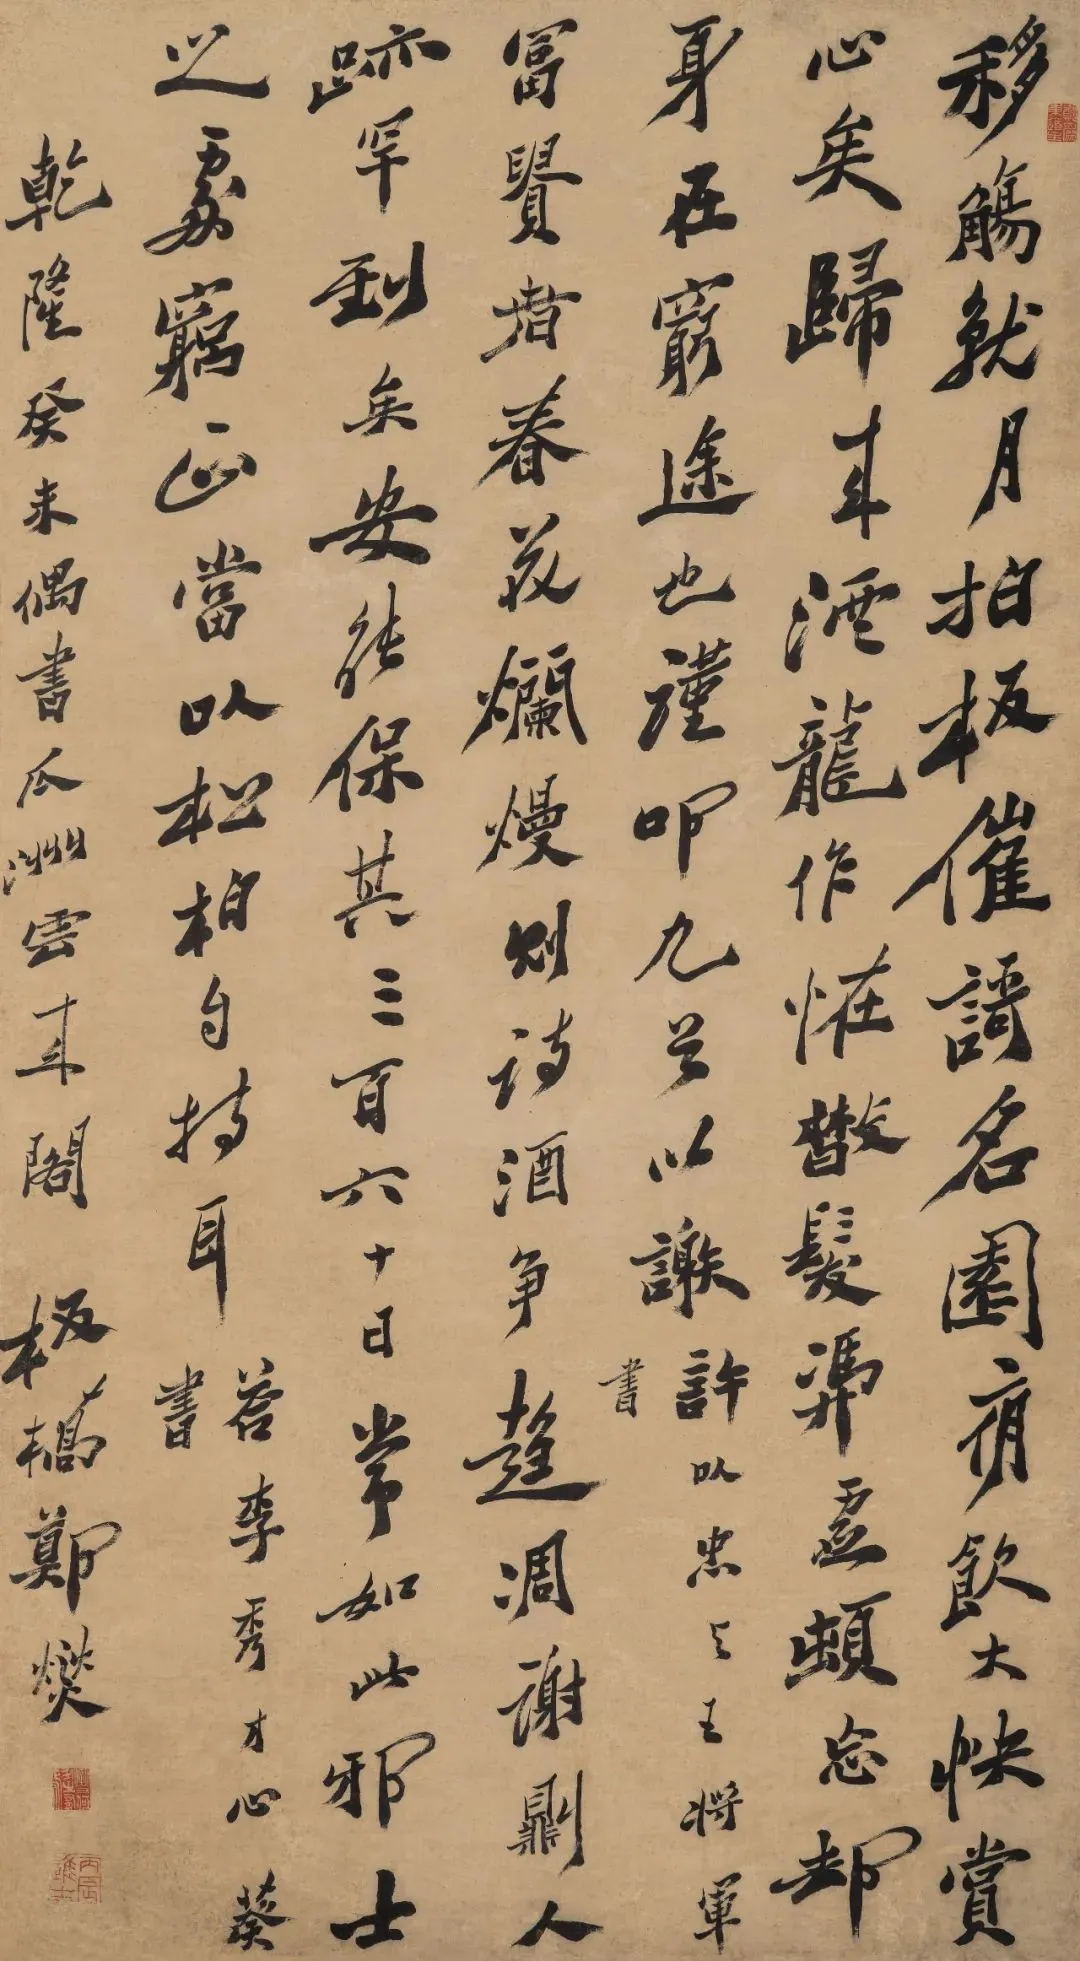 移觴就月拍板催謌名園夜飲大快賞
心矣歸来酒龍作怪散髮憑虛頓忘却
身在窮途也謹叩九首以謝
許以忠与王將軍
書
富貴者春花爛熳則詩酒爭趨凋謝則人
跡罕到矣安能保其三百六十日常如此邪士
之處窮正當以松柏自持耳
荅李秀才心葵
書
乾隆癸未偶書瓜洲雲来閣 板橋鄭燮
丙辰進士